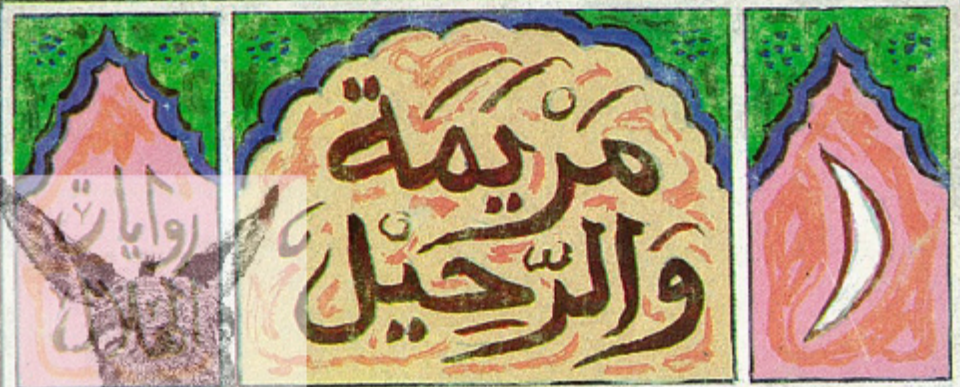 مَرْيَمَة
وَالرَّحِيْل
روايات